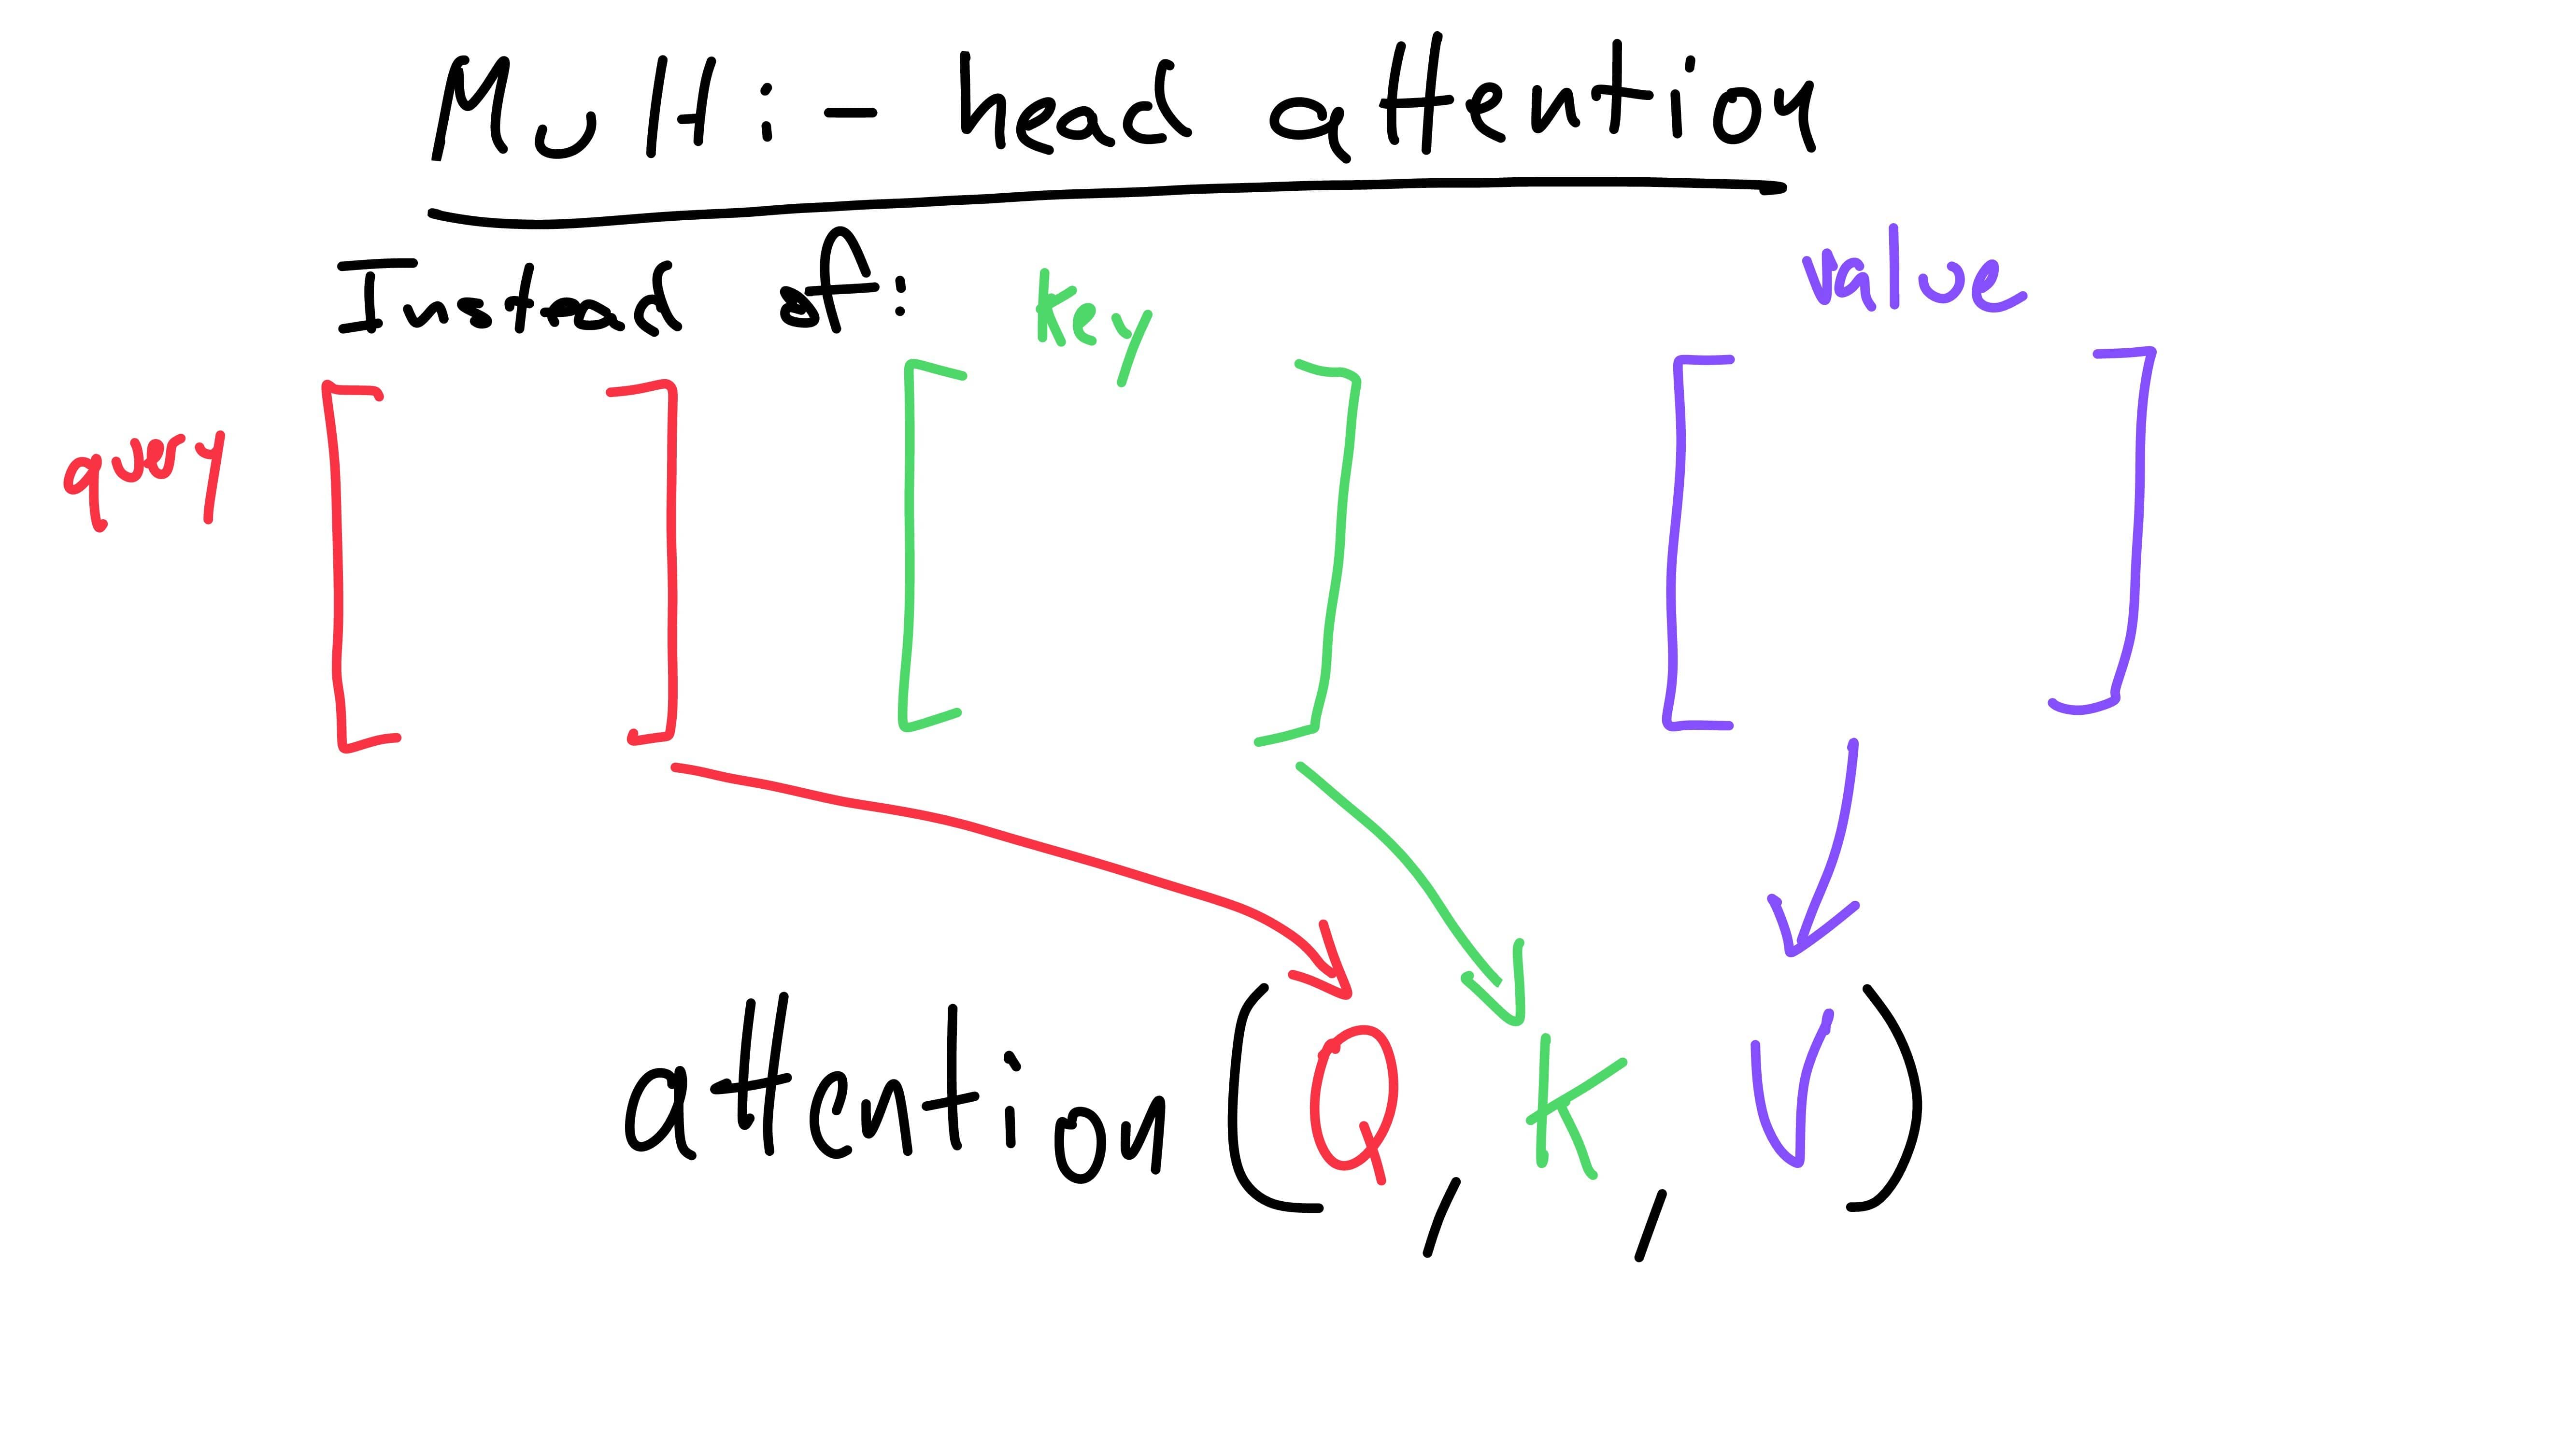 Multi-head attention
Instead of:
key
value
query
attention (Q, K, V)